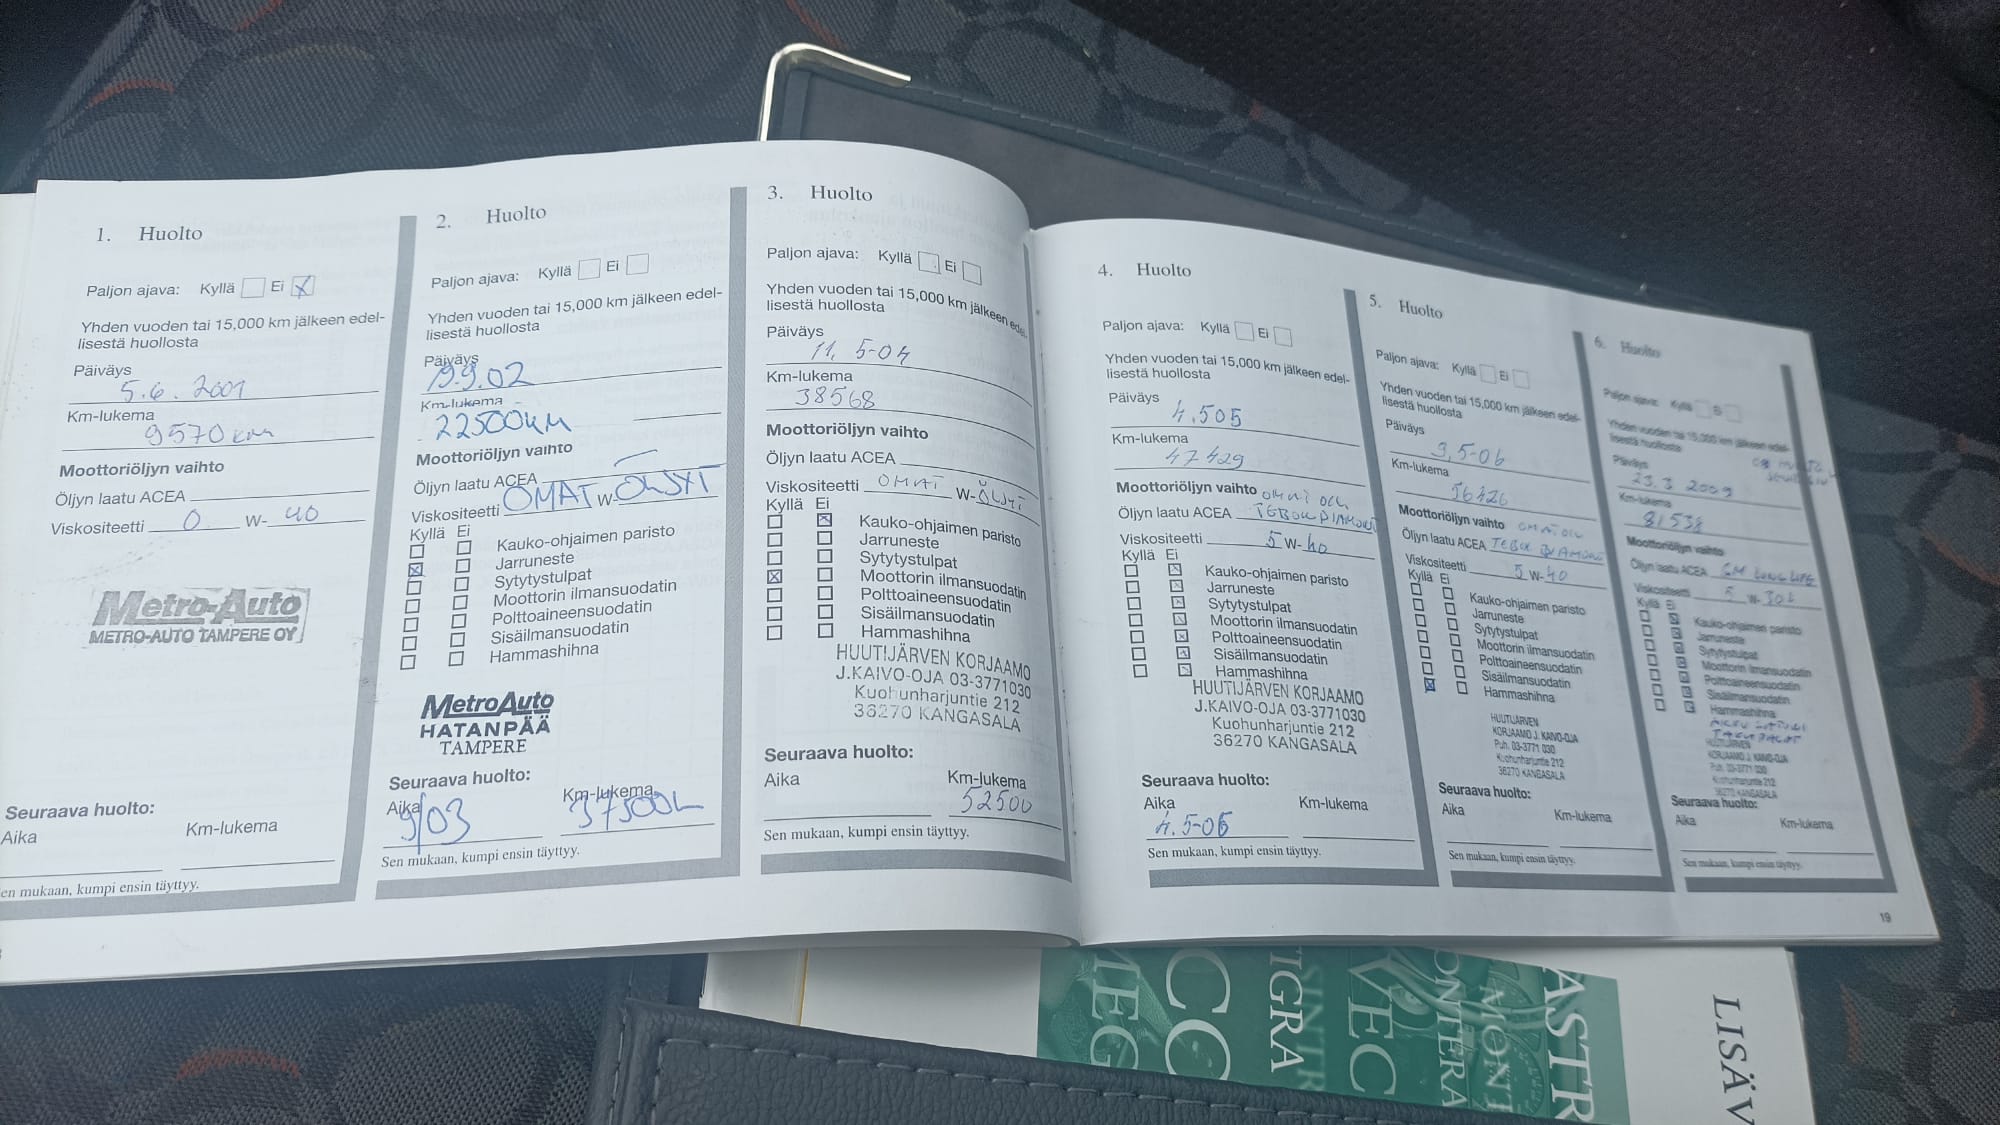 1. Huolto
Paljon ajava: Kyllä Ei
Yhden vuoden tai 15,000 km jälkeen edel-
lisestä huollosta
Päiväys
5.6.2001
Km-lukema
9570 km
Moottoriöljyn vaihto
Öljyn laatu ACEA
Viskositeetti 0 W- 40
Metro-Auto
METRO-AUTO TAMPERE OY
Seuraava huolto:
Aika Km-lukema
en mukaan, kumpi ensin täyttyy.
2. Huolto
Paljon ajava: Kyllä Ei
Yhden vuoden tai 15,000 km jälkeen edel-
lisestä huollosta
Päiväys
19.9.02
Km-lukema
22500KM
Moottoriöljyn vaihto
Öljyn laatu ACEA
Viskositeetti OMAT W- ÖLJYT
Kyllä Ei
Kauko-ohjaimen paristo
Jarruneste
Sytytystulpat
Moottorin ilmansuodatin
Polttoaineensuodatin
Sisäilmansuodatin
Hammashihna
MetroAuto
HATANPÄÄ
TAMPERE
Seuraava huolto:
Aika Km-lukema
9/03 37500
Sen mukaan, kumpi ensin täyttyy.
3. Huolto
Paljon ajava: Kyllä Ei
Yhden vuoden tai 15,000 km jälkeen ede
lisestä huollosta
Päiväys
11.5-04
Km-lukema
38568
Moottoriöljyn vaihto
Öljyn laatu ACEA
Viskositeetti OMAT W- ÖLJYT
Kyllä Ei
Kauko-ohjaimen paristo
Jarruneste
Sytytystulpat
Moottorin ilmansuodatin
Polttoaineensuodatin
Sisäilmansuodatin
Hammashihna
HUUTIJÄRVEN KORJAAMO
J.KAIVO-OJA 03-3771030
Kuohunharjuntie 212
36270 KANGASALA
Seuraava huolto:
Aika Km-lukema
52500
Sen mukaan, kumpi ensin täyttyy.
4. Huolto
Paljon ajava: Kyllä Ei
Yhden vuoden tai 15,000 km jälkeen edel-
lisestä huollosta
Päiväys
4.505
Km-lukema
47429
Moottoriöljyn vaihto
Öljyn laatu ACEA
Viskositeetti 5 W- 40
Kyllä Ei
Kauko-ohjaimen paristo
Jarruneste
Sytytystulpat
Moottorin ilmansuodatin
Polttoaineensuodatin
Sisäilmansuodatin
Hammashihna
HUUTIJÄRVEN KORJAAMO
J.KAIVO-OJA 03-3771030
Kuohunharjuntie 212
36270 KANGASALA
Seuraava huolto:
Aika Km-lukema
4.5-06
Sen mukaan, kumpi ensin täyttyy.
5. Huolto
Paljon ajava: Kyllä Ei
Yhden vuoden tai 15,000 km jälkeen edel-
lisestä huollosta
Päiväys
3,5-06
Km-lukema
56426
Moottoriöljyn vaihto
Öljyn laatu ACEA
Viskositeetti 5 W- 40
Kyllä Ei
Kauko-ohjaimen paristo
Jarruneste
Sytytystulpat
Moottorin ilmansuodatin
Polttoaineensuodatin
Sisäilmansuodatin
Hammashihna
HUUTIJÄRVEN
KORJAAMO J. KAIVO-OJA
Puh. 03-3771 030
Kuohunharjuntie 212
36270 KANGASALA
Seuraava huolto:
Aika Km-lukema
Sen mukaan, kumpi ensin täyttyy.
6. Huolto
Paljon ajava: Kyllä Ei
Yhden vuoden tai 15,000 km jälkeen edel-
lisestä huollosta
Päiväys
23.3 2009
Km-lukema
81538
Moottoriöljyn vaihto
Öljyn laatu ACEA GM LONG LIFE
Viskositeetti 5 W- 30
Kyllä Ei
Kauko-ohjaimen paristo
Jarruneste
Sytytystulpat
Moottorin ilmansuodatin
Polttoaineensuodatin
Sisäilmansuodatin
Hammashihna
HUUTIJÄRVEN
KORJAAMO J. KAIVO-OJA
Puh. 03-3771 030
Kuohunharjuntie 212
36270 KANGASALA
Seuraava huolto:
Aika Km-lukema
Sen mukaan, kumpi ensin täyttyy.
19
MEG
CO
TIGRA
SINTR
VEC
ONTERA
MON
ASTR
LISÄV